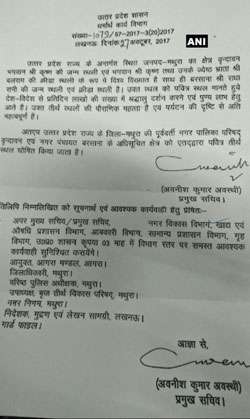 उत्तर प्रदेश शासन
धर्मार्थ कार्य विभाग
ANI
लखनऊ दिनांक अक्टूबर, 2017
उत्तर प्रदेश राज्य के अन्तर्गत स्थित जनपद-मथुरा का क्षेत्र वृन्दावन
भगवान श्री कृष्ण की जन्म स्थली एवं भगवान श्री कृष्ण तथा उनके ज्येष्ठ भ्राता श्री
बलराम की क्रीड़ा स्थली के रूप में विश्व विख्यात है साथ ही बरसाना श्री राधा
रानी की जन्म स्थली एवं क्रीड़ा स्थली है। उक्त स्थल को पवित्र स्थल मानते हुये
देश-विदेश से प्रतिदिन लाखों की संख्या में श्रद्धालु दर्शन करने एवं पुण्य लाभ हेतु
आते है। उक्त तीर्थ स्थलों की पौराणिक महत्ता है एवं पर्यटन की दृष्टि से अति
महत्वपूर्ण है।
अतएव उत्तर प्रदेश राज्य के जिला-मथुरा की पूर्ववर्ती नगर पालिका परिषद
वृन्दावन एवं नगर पंचायत बरसाना के अधिसूचित क्षेत्र को एतद्द्वारा पवित्र तीर्थ
स्थल घोषित किया जाता है।
(अवनीश कुमार अवस्थी)
प्रमुख सचिव।
तिलिपि निम्नलिखित को सूचनार्थ एवं आवश्यक कार्यवाही हेतु प्रेषित:-
अपर मुख्य सचिव/प्रमुख सचिव, नगर विकास विभाग, खाद्य एवं
औषधि प्रशासन विभाग, आबकारी विभाग, सामान्य प्रशासन विभाग, गृह
विभाग, उ0प्र0 शासन कृपया 03 माह में विभाग स्तर पर समस्त आवश्यक
कार्यवाही सुनिश्चित करायेंगे।
आयुक्त, आगरा मण्डल, आगरा।
जिलाधिकारी, मथुरा।
वरिष्ठ पुलिस अधीक्षक, मथुरा।
उपाध्यक्ष, बृज तीर्थ विकास परिषद्, मथुरा।
नगर निगम, मथुरा।
निदेशक, मुद्रण एवं लेखन सामग्री, लखनऊ।
गार्ड फाइल।
आज्ञा से,
(अवनीश कुमार अवस्थी)
प्रमुख सचिव।